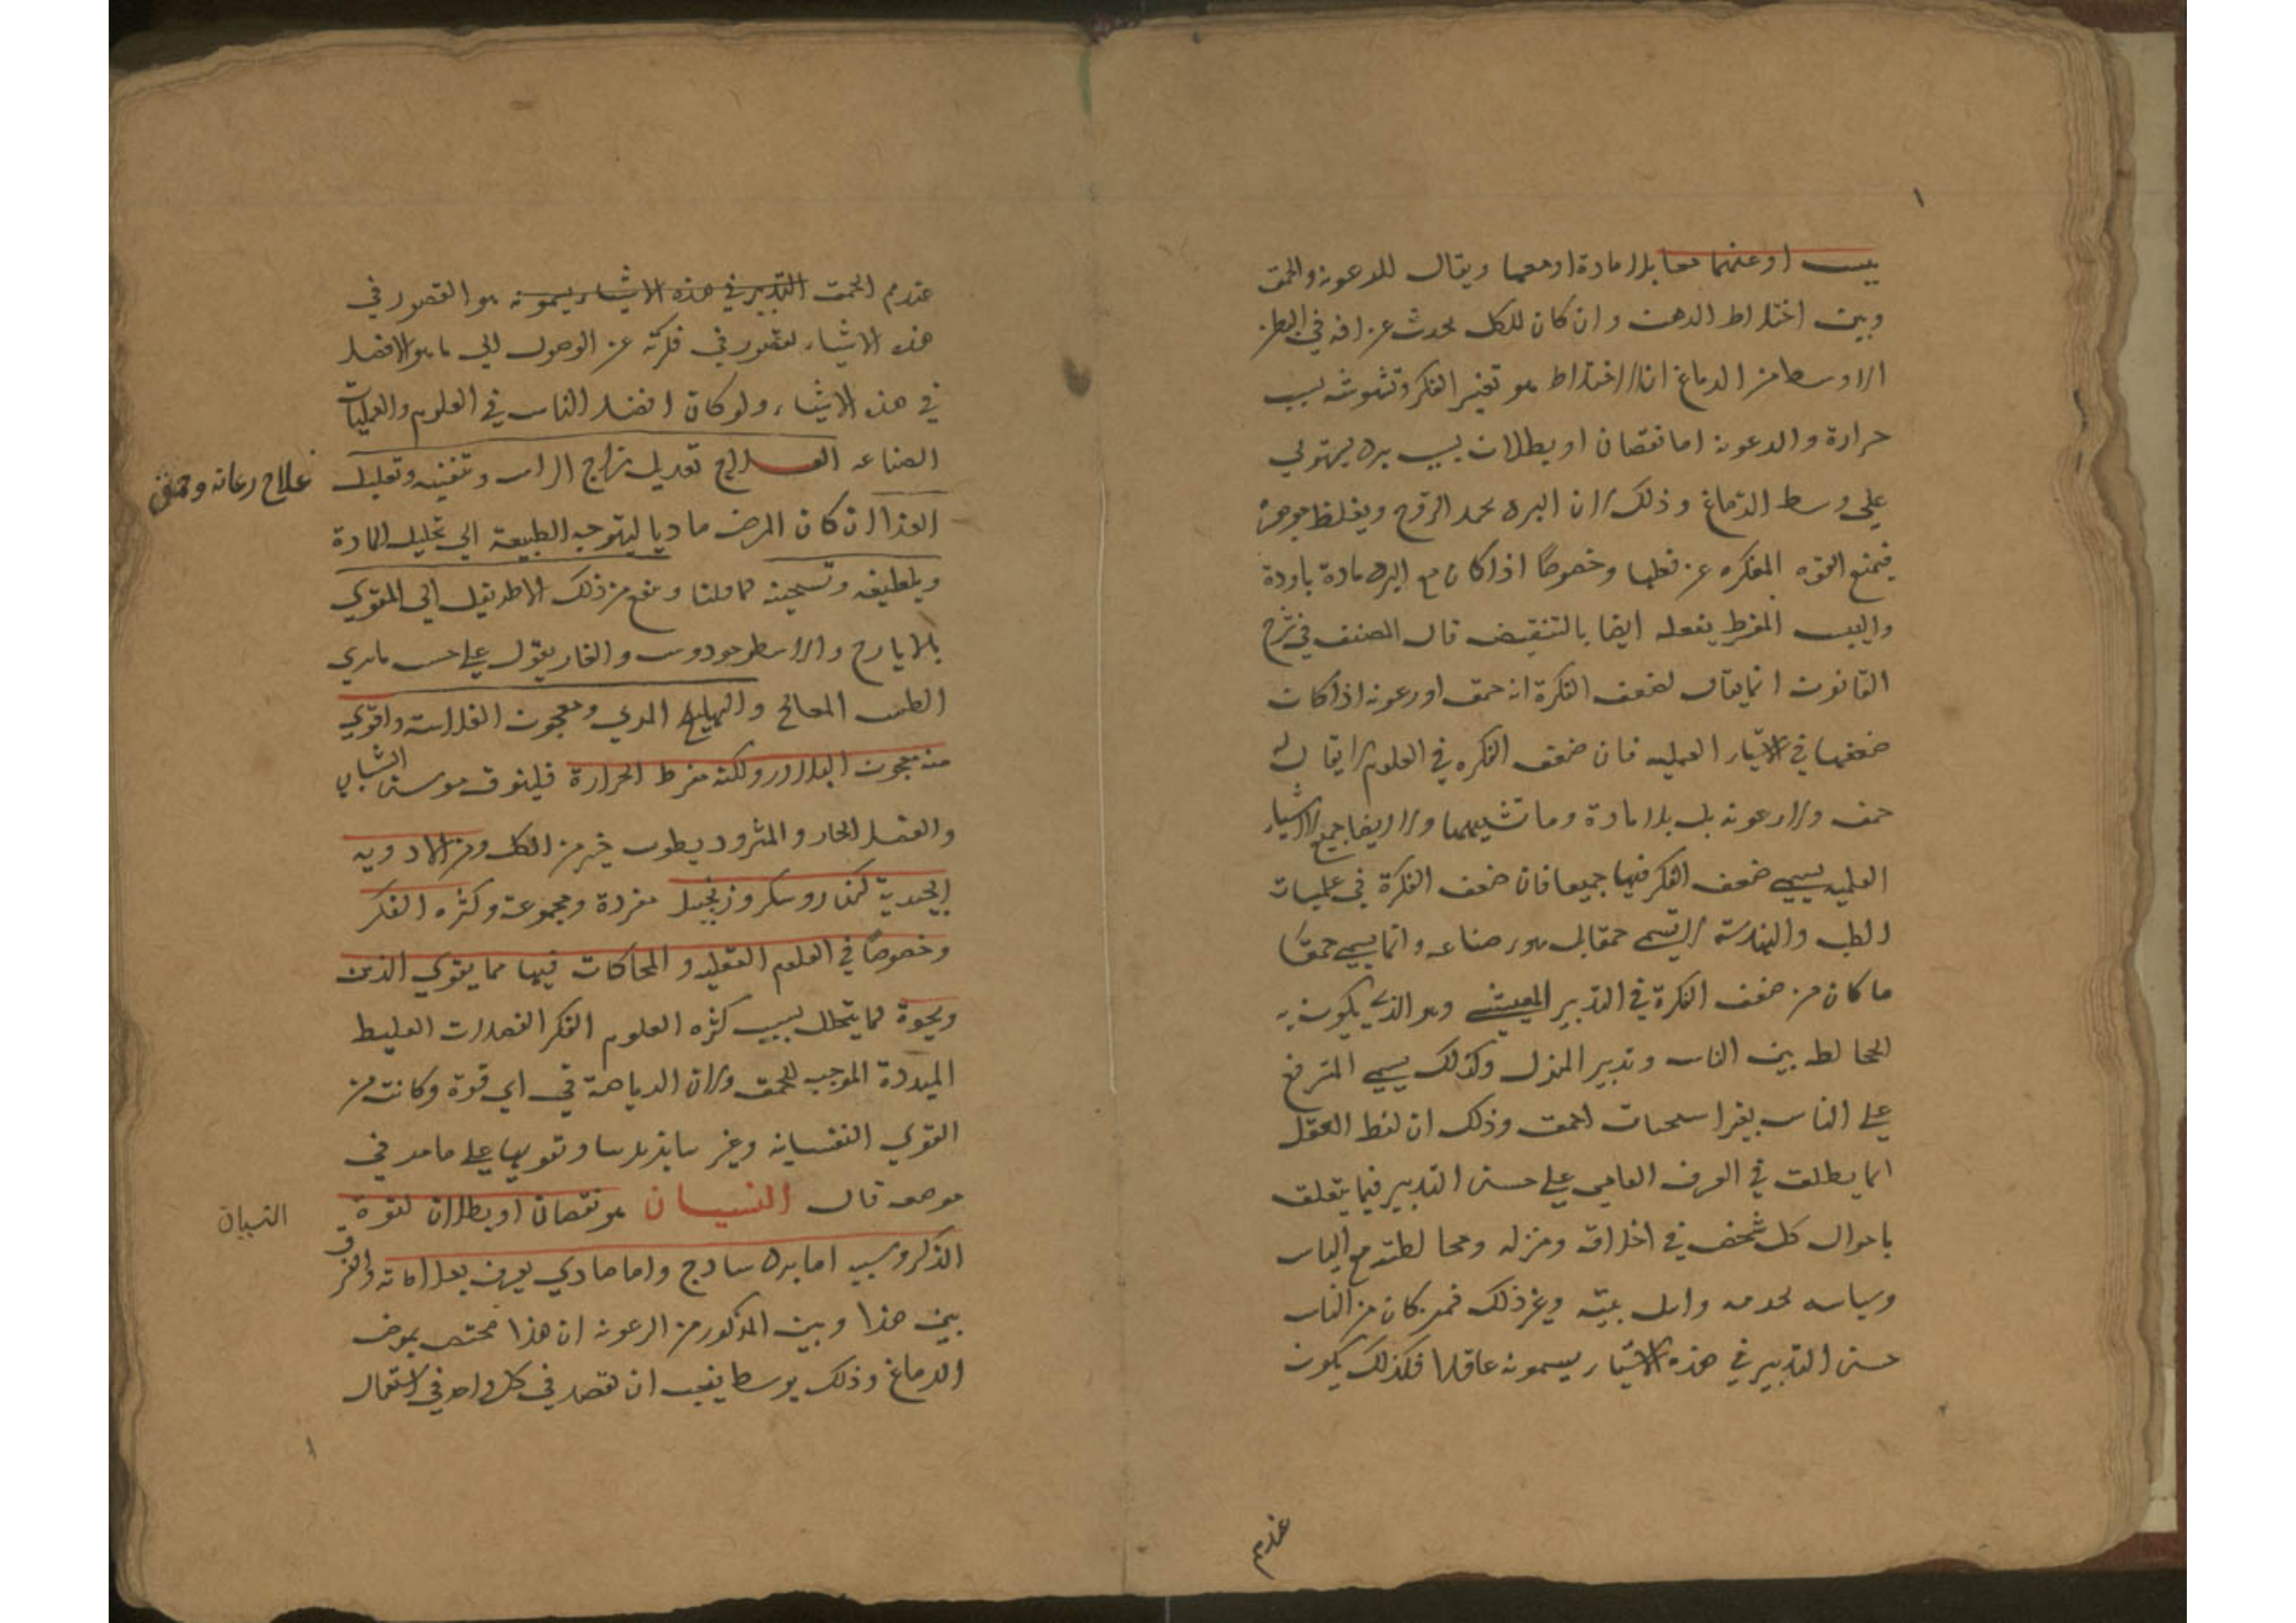 يبس اوعنهما معا بلا مادة او معها ويقال للرعونه والحمق
وبين اختلاط الذهن وان كان للكل يحدث عن افه في البطن
الاوسط من الدماغ ان الاختلاط هو تغير الفكر وتشوشه بسبب
حرارة والرعونه اما نقصان او بطلان بسبب برد يستولي
علي وسط الدماغ وذلك لان البرد يجمد الروح ويغلظ جوهره
فيمنع القوه المفكره عن فعلها وخصوصًا اذا كان مع البرد مادة باردة
واليبس المفرط يفعله ايضا بالتنقيض قال المصنف في شرح
القانون انما يقال لضعف الفكرة انه حمق او رعونه اذا كان
ضعفها في الاشياء العمليه فان ضعف الفكره في العلوم لا يقال له
حمق ولا رعونه بل بلا مادة وما ولا ايضا جميع الاشياء
العمليه يسمي ضعف الفكر فيها جميعا فان ضعف الفكرة في عمليات
الطب والهندسة لا تسمي حمقا بل صناعه وانما يسمي حمقًا
ما كان من ضعف الفكرة في التدبير المعيشي وهو الذي يكون به
المخالطه بين الناس وتدبير المنزل وكذلك يسمي المترفع
علي الناس بغير احمق وذلك ان لفظ العقل
انما يطلق في العرف العامي علي حسن التدبير فيما يتعلق
باحوال كل شخص في اخلاقه ومنزله ومخالطته مع الناس
وسياسه لخدمه واهل بيته وغير ذلك فمن كان من الناس
حسن التدبير في هذه الاشياء يسمونه عاقلا فكذلك يكون
عندهم
عندهم الحمق التدبير في هذه الاشياء يسمونه هو القصور في
هذه الاشياء لقصور في فكرته عن الوصول الي ما هو الافضل
في هذه الاشياء ولو كان افضل الناس في العلوم والعمليات
الصناعه العلاج تعديل مزاج الراس وتنقيته وتقليل
علاج رعانه وحمق
الغذا ان كان المرض ماديا ليتوجه الطبيعة الي تحليل المادة
وتلطيفه وتسخينه كما قلنا وينفع من ذلك الاطريفل الي المقوي
بالايارج والاسطوخودوس والغاريقون علي حسب ما يري
الطبيب المعالج والهليلج المربي ومعجون الفلاسفه واقوي
منه معجون البلادر ولكنه مفرط الحرارة فليتوق الشباب
والعسل الحار والمثروديطوس خير من الكل ومن الادويه
الجيدية كندر وسكر وزنجبيل مفردة ومجموعة وكثره الفكر
وخصوصًا في العلوم العقليه والمحاكات فيها مما يقوي الذهن
ويجوه لما يتحلل بسبب كثره العلوم الفكر الفضلات الغليظ
المبردة الموجبه للحمق ولان الرياضة في اي قوة وكانت من
القوي النفسانيه وغيرها وتقويها علي ما مر في
موضعه قال النسيان هو نقصان او بطلان لقوة
النسيان
الذكر وسببه اما برد ساذج واما مادي يعرف بعلاماته والفرق
بين هذا وبين المذكور من الرعونه ان هذا مختص بموخر
الدماغ وذلك بوسطه يجب ان نقصد في كل واحد في استعمال